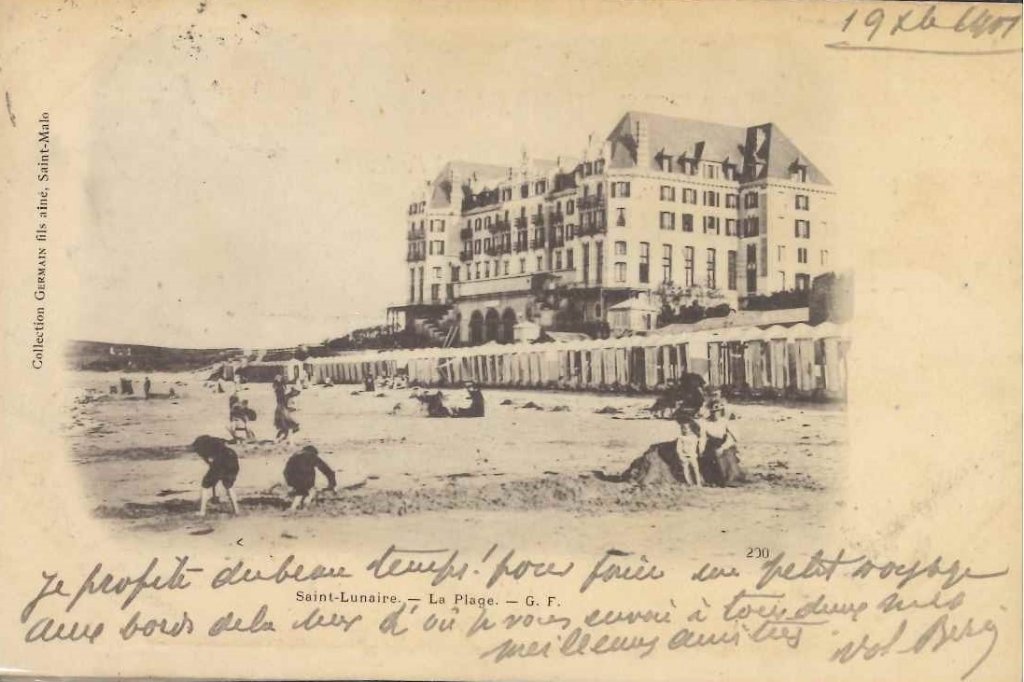 19 Xbre 1901
Collection GERMAIN fils aîné, Saint-Malo
200
Je profite du beau temps! pour faire un petit voyage
Saint-Lunaire. — La Plage. — G. F.
aux bords de la mer d'où je vous envoie à tous deux mes
meilleures amitiés